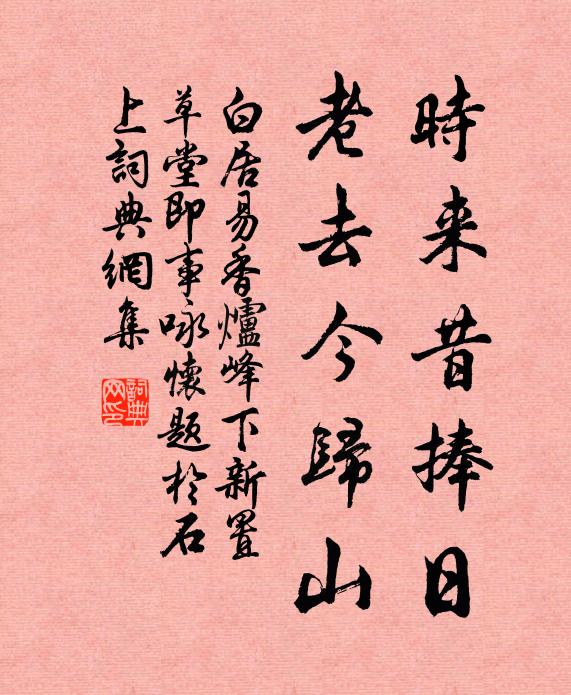 時来昔捧日
老去今歸山
白居易香爐峰下新置
草堂即事咏懷題於石
上詞典網集
詞典
网印